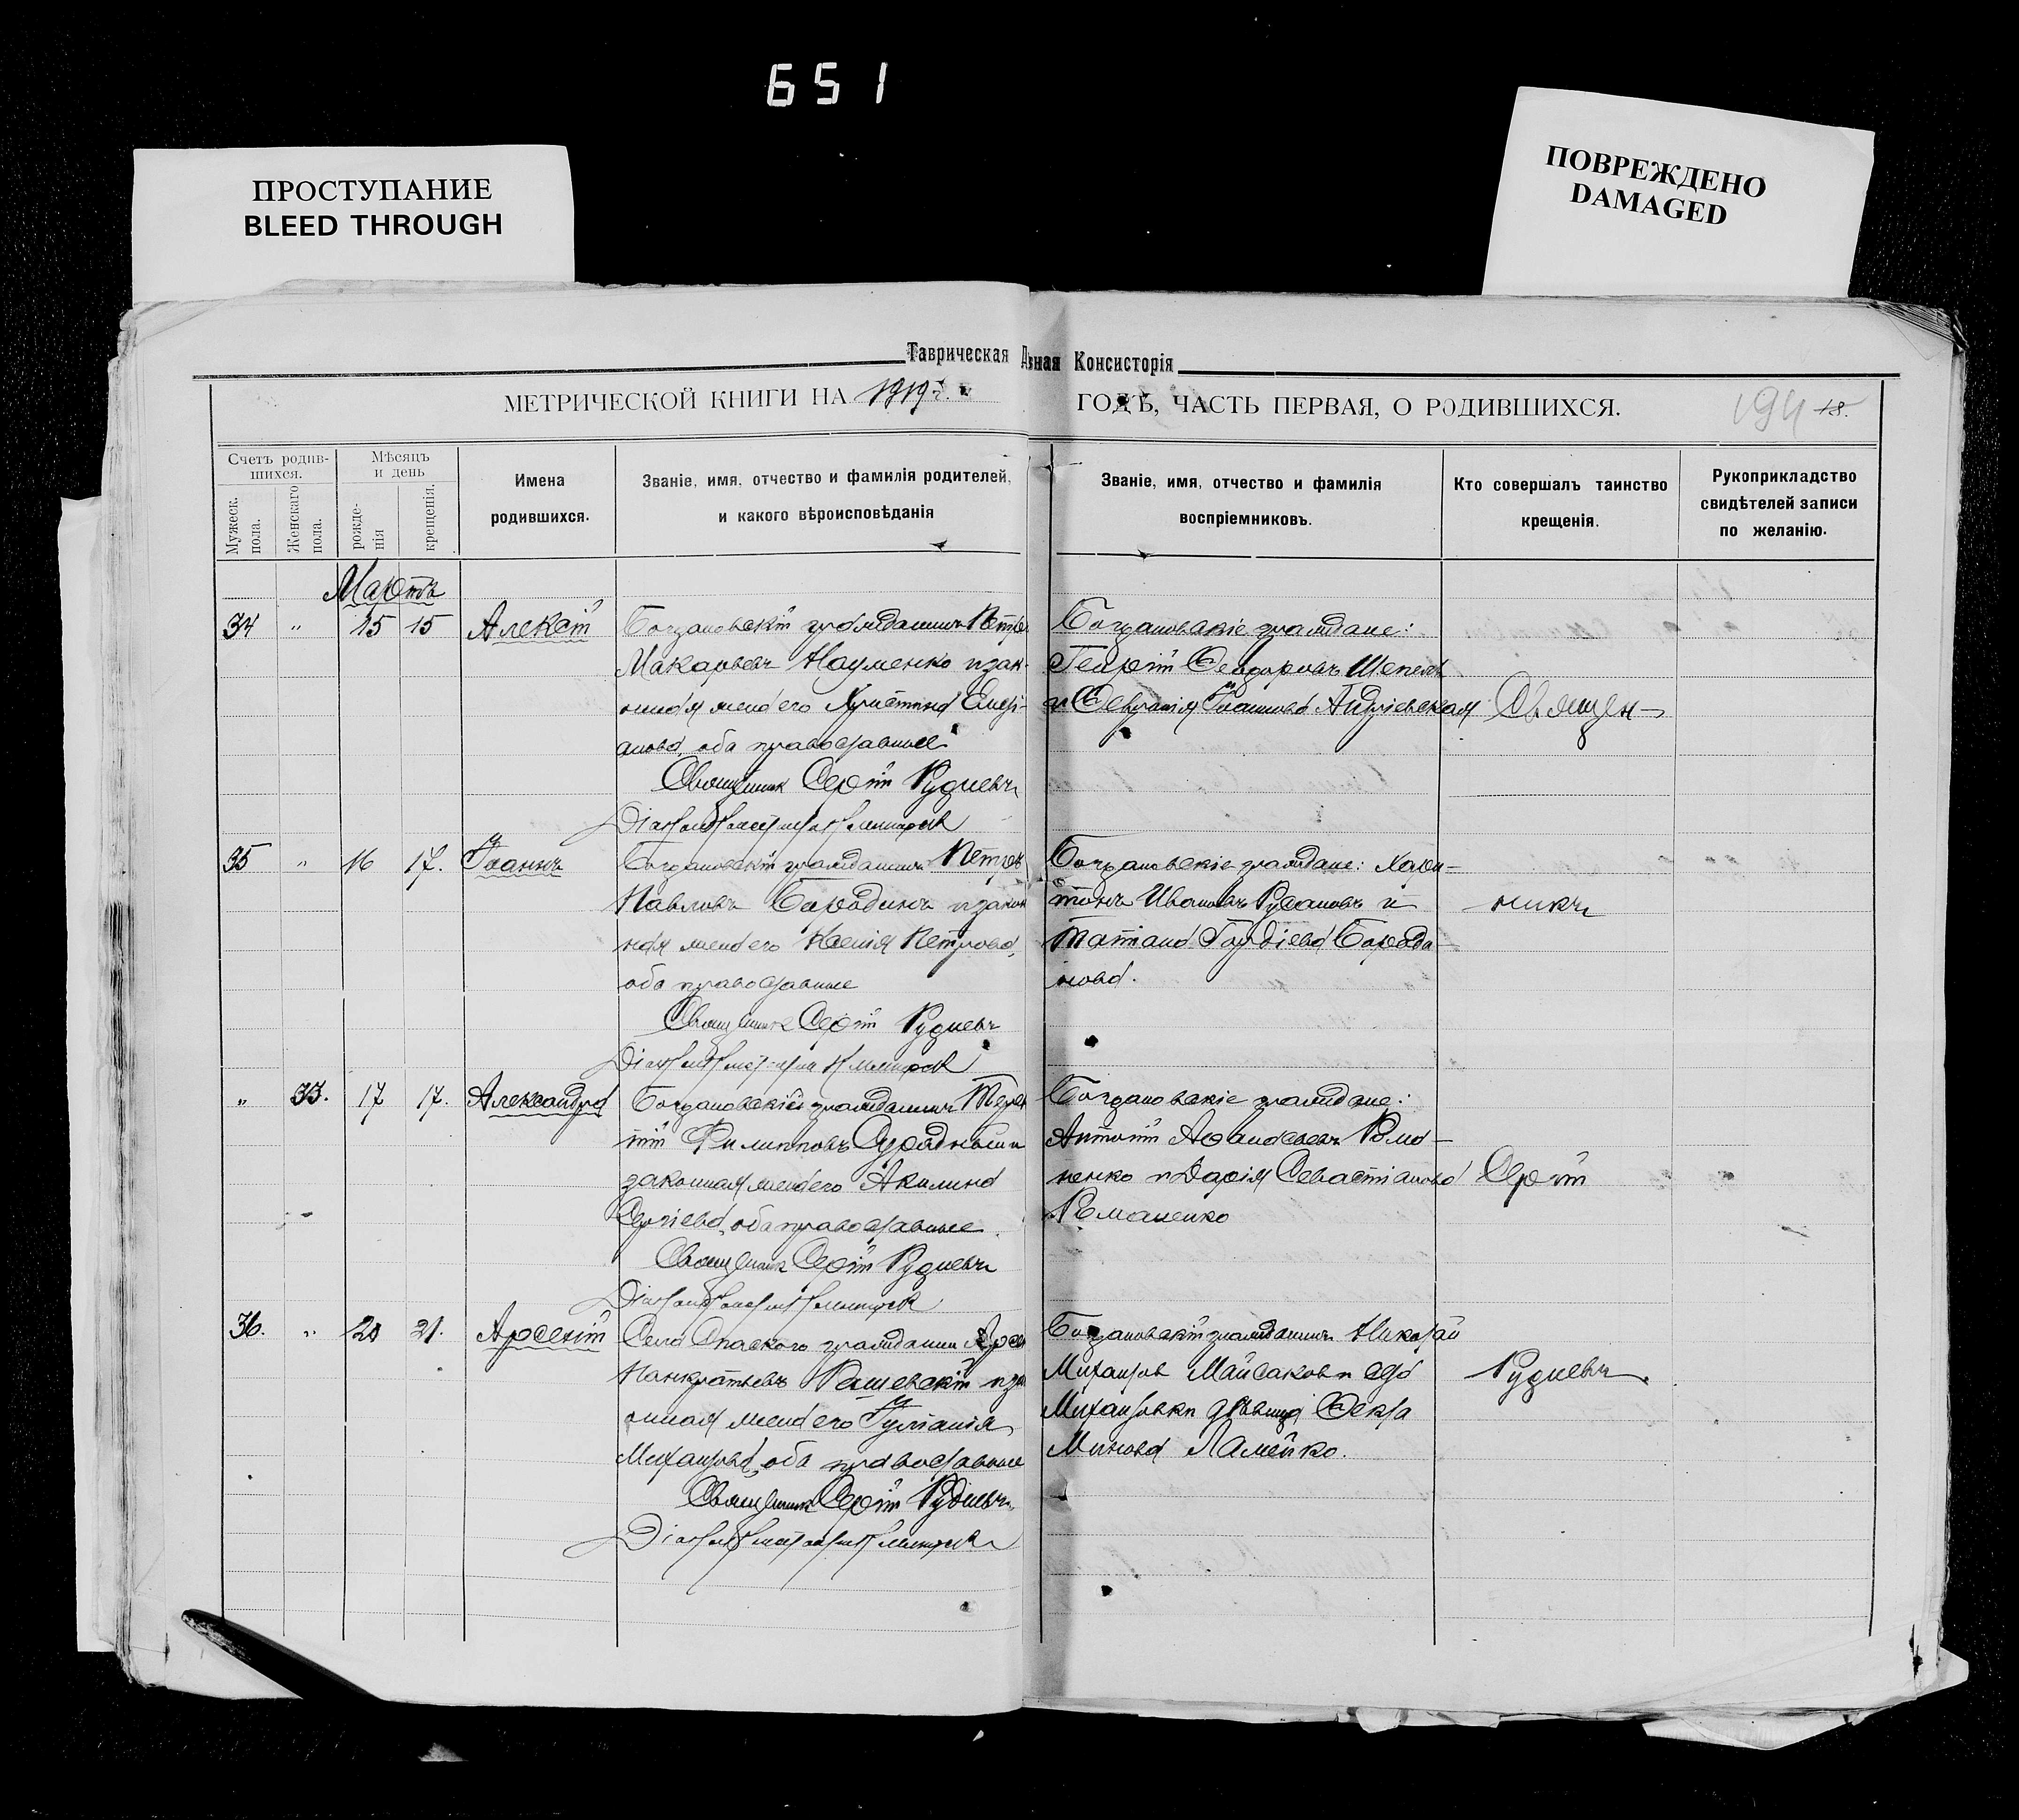 651
ПРОСТУПАНИЕ
BLEED THROUGH
ПОВРЕЖДЕНО
DAMAGED
Таврическая Д ьная Консисторія
МЕТРИЧЕСКОЙ КНИГИ НА 1919 г. ГОДЪ, ЧАСТЬ ПЕРВАЯ, О РОДИВШИХСЯ.
194 18.
Счетъ родив-
шихся.
Мужеск. пола.
Женскаго пола.
Мѣсяцъ
и день
рожде-
нія
крещенія.
Имена
родившихся.
Званіе, имя, отчество и фамилія родителей,
и какого вѣроисповѣданія
Званіе, имя, отчество и фамилія
воспріемниковъ.
Кто совершалъ таинство
крещенія.
Рукоприкладство
свидѣтелей записи
по желанію.
Мартъ
34 " 15 15 Алексій
Богдановскій гражданинъ Петръ
Макарьевъ Науменко и зак-
онная жена его Христина Емері-
анова, оба православные
Священник Сергій Рудневъ
Богдановскіе граждане:
Георгій Феодоровъ Шепель
и Евгенія Іоаннова Андріевская
Священ-
35 " 16 17. Іоаннъ
Богдановскій гражданинъ Петръ
Павловъ Бородинъ и закон
ная жена его Ксенія Петрова,
оба православные
Священник Сергій Рудневъ
Богдановскіе граждане: Хари-
тонъ Ивановъ Русановъ и
Татіана Гордіева Бороди-
нова.
никъ
" 33. 17 17. Александра
Богдановскій гражданинъ Терен
тій Филипповъ и
законная жена его Акилина
Сергіева, оба православные
Священник Сергій Рудневъ
Богдановскіе граждане:
Антоній Афанасьевъ Рома-
ненко и Дарія Севастіанова
Романенко
Сергій
36. " 20 21. Арсеній
Села Спаского гражданин Арсе
Панкратьевъ Рашевскій и за
онная жена его Іуліанія
Михаилова, оба православные
Священник Сергій Рудневъ
Богдановскій гражданинъ Николай
Михаилов Майсаков и села
Михайловки дѣвица Фекла
Минова Ламейко.
Рудневъ.